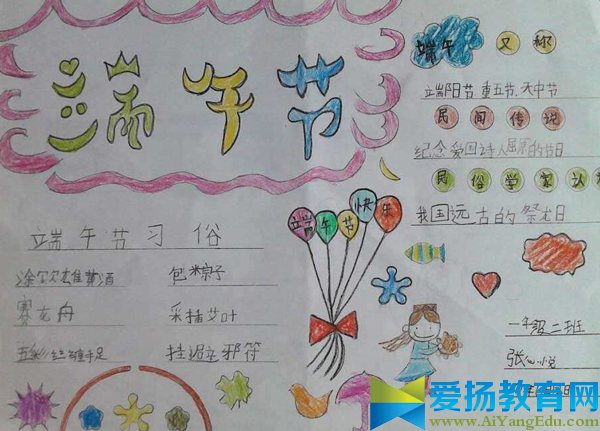 端午节
端午 又称
端阳节 重五节 天中节
民间传说
纪念爱国诗人屈原的节日
民俗学家认
我国远古的祭龙日
端午节快乐
端午节习俗
包粽子
赛龙舟
采插艾叶
五彩丝缠手足
挂避邪符
一年级二班
爱扬教育网
www.AiYangEdu.com